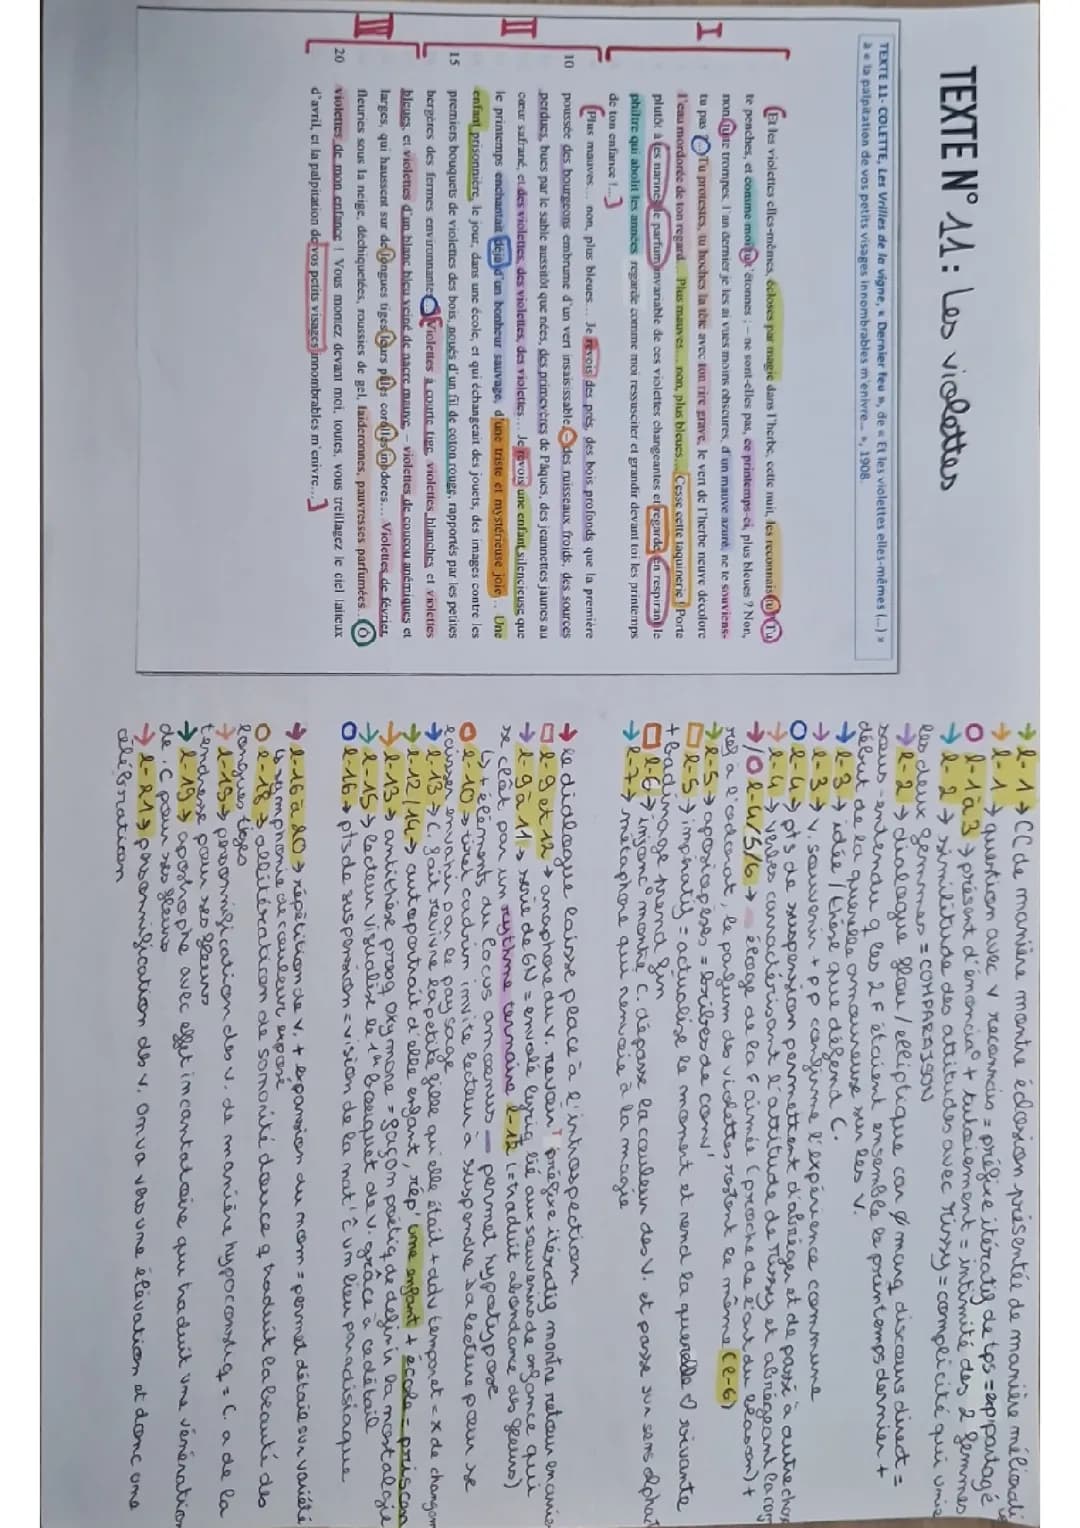 TEXTE N° 11 : Les violettes
TEXTE 11- COLETTE, Les Vrilles de la vigne, « Dernier feu », de « Et les violettes elles-mêmes (...) »
à « la palpitation de vos petits visages innombrables m'enivre... », 1908.
I
II
III
Et les violettes elles-mêmes, écloses par magie dans l'herbe, cette nuit, les reconnais-tu ? Tu
te penches, et comme moi tu t'étonnes ; – ne sont-elles pas, ce printemps-ci, plus bleues ? Non,
non, tu te trompes, l'an dernier je les ai vues moins obscures, d'un mauve azuré, ne te souviens-
tu pas ?... Tu protestes, tu hoches la tête avec ton rire grave, le vert de l'herbe neuve décolore
l'eau mordorée de ton regard... Plus mauves... non, plus bleues... Cesse cette taquinerie ! Porte
plutôt à tes narines le parfum invariable de ces violettes changeantes et regarde, en respirant le
philtre qui abolit les années, regarde comme moi ressusciter et grandir devant toi les printemps
de ton enfance !...
Plus mauves... non, plus bleues... Je revois des prés, des bois profonds que la première
10 poussée des bourgeons embrume d'un vert insaisissable, – des ruisseaux froids, des sources
perdues, bues par le sable aussitôt que nées, des primevères de Pâques, des jeannettes jaunes au
cœur safrané, et des violettes, des violettes, des violettes... Je revois une enfant silencieuse que
le printemps enchantait déjà d'un bonheur sauvage, d'une triste et mystérieuse joie... Une
enfant prisonnière, le jour, dans une école, et qui échangeait des jouets, des images contre les
15 premiers bouquets de violettes des bois, noués d'un fil de coton rouge, rapportés par les petites
bergères des fermes environnantes... Violettes à courte tige, violettes blanches et violettes
bleues, et violettes d'un blanc bleu veiné de nacre mauve, – violettes de coucou anémiques et
larges, qui haussent sur de longues tiges leurs pâles corolles inodores... Violettes de février,
fleuries sous la neige, déchiquetées, roussies de gel, laideronnes, pauvresses parfumées... Ô
20 violettes de mon enfance ! Vous montez devant moi, toutes, vous treillagez le ciel laiteux
d'avril, et la palpitation de vos petits visages innombrables m'enivre...
→ l-1 → CC de manière montre éclosion présentée de manière méliorati
→ l-1 → question avec v reconnais = préfixe itératif de tps = exp partagé
O l-1 à 3 → présent d'énonciaº + tutoiement = intimité des 2 femmes
→ l-2 → similitude des attitudes avec Missy = complicité qui unie
les deux femmes = COMPARAISON
→ l-2 → dialogue flou / elliptique car ∅ marq discours direct =
sous-entendu q les 2 F étaient ensemble le printemps dernier +
début de la querelle amoureuse sur les V.
→ l-3 → idée / thèse que défend C.
→ l-3 → v. souvenir + pp confirme l'expérience commune
O l-4 → pts de suspension permettent d'abréger et de passé à autre chos
→ l-4 → verbes caractérisant l'attitude de Missy et abrégeant la con
→/O l-4/5/6 → éloge de la F aimée (proche de l'art du blason) +
réf à l'odorat, le parfum des violettes restent le même (l-6)
→ l-5 → aposiopèses = bribes de conv'
□ l-5 → impératif = actualise le moment et rend la querelle ♡ vivante
+ badinage prend fin
□ l-6 → injoncº montre C. dépasse la couleur des V. et passe sur sens olphat
→ l-7 → métaphore qui renvoie à la magie
→ le dialogue laisse place à l'introspection
□ l-9 et 12 → anaphore du v. revoir préfixe itératif montre retour en arriè
→ l-9 à 11 → série de GN = envolée lyriq lié aux souvenirs de enfance qui
se clôt par un rythme ternaire l-12 (= traduit abondance des fleurs)
↳ + éléments du locus amoenus — permet hypotypose
O l-10 → tiret cadratin invite lecteur a suspendre sa lecture pour se
laisser envahir par le paysage
→ l-13 → C. fait revivre la petite fille qu'elle était + adv temporel = x de changem
→ l-12/14 → autoportrait d'elle enfant, rép' une enfant + école = prison
→ l-13 → antithèse proq oxymore = façon poétiq de définir la nostalgie
→ l-15 → lecteur visualise le 1er bouquet de v. grâce à ce détail
O l-16 → pts de suspension = vision de la nat' ĉ un lieu paradisiaque
→ l-16 à 20 → répétition de v. + expansion du nom = permet détail sur variété
↳ symphonie de couleur exposé
O l-18 → allitération de sonorité douce q traduit la beauté des
longues tiges
→ l-19 → personnification des v. de manière hypocoristiq = C. a de la
tendresse pour ses fleurs
→ l-19 → apostrophe avec effet incantatoire qui traduit une vénération
de C pour ses fleurs
→ l-21 → personnification des v. on va vers une élévation et donc une
célébration